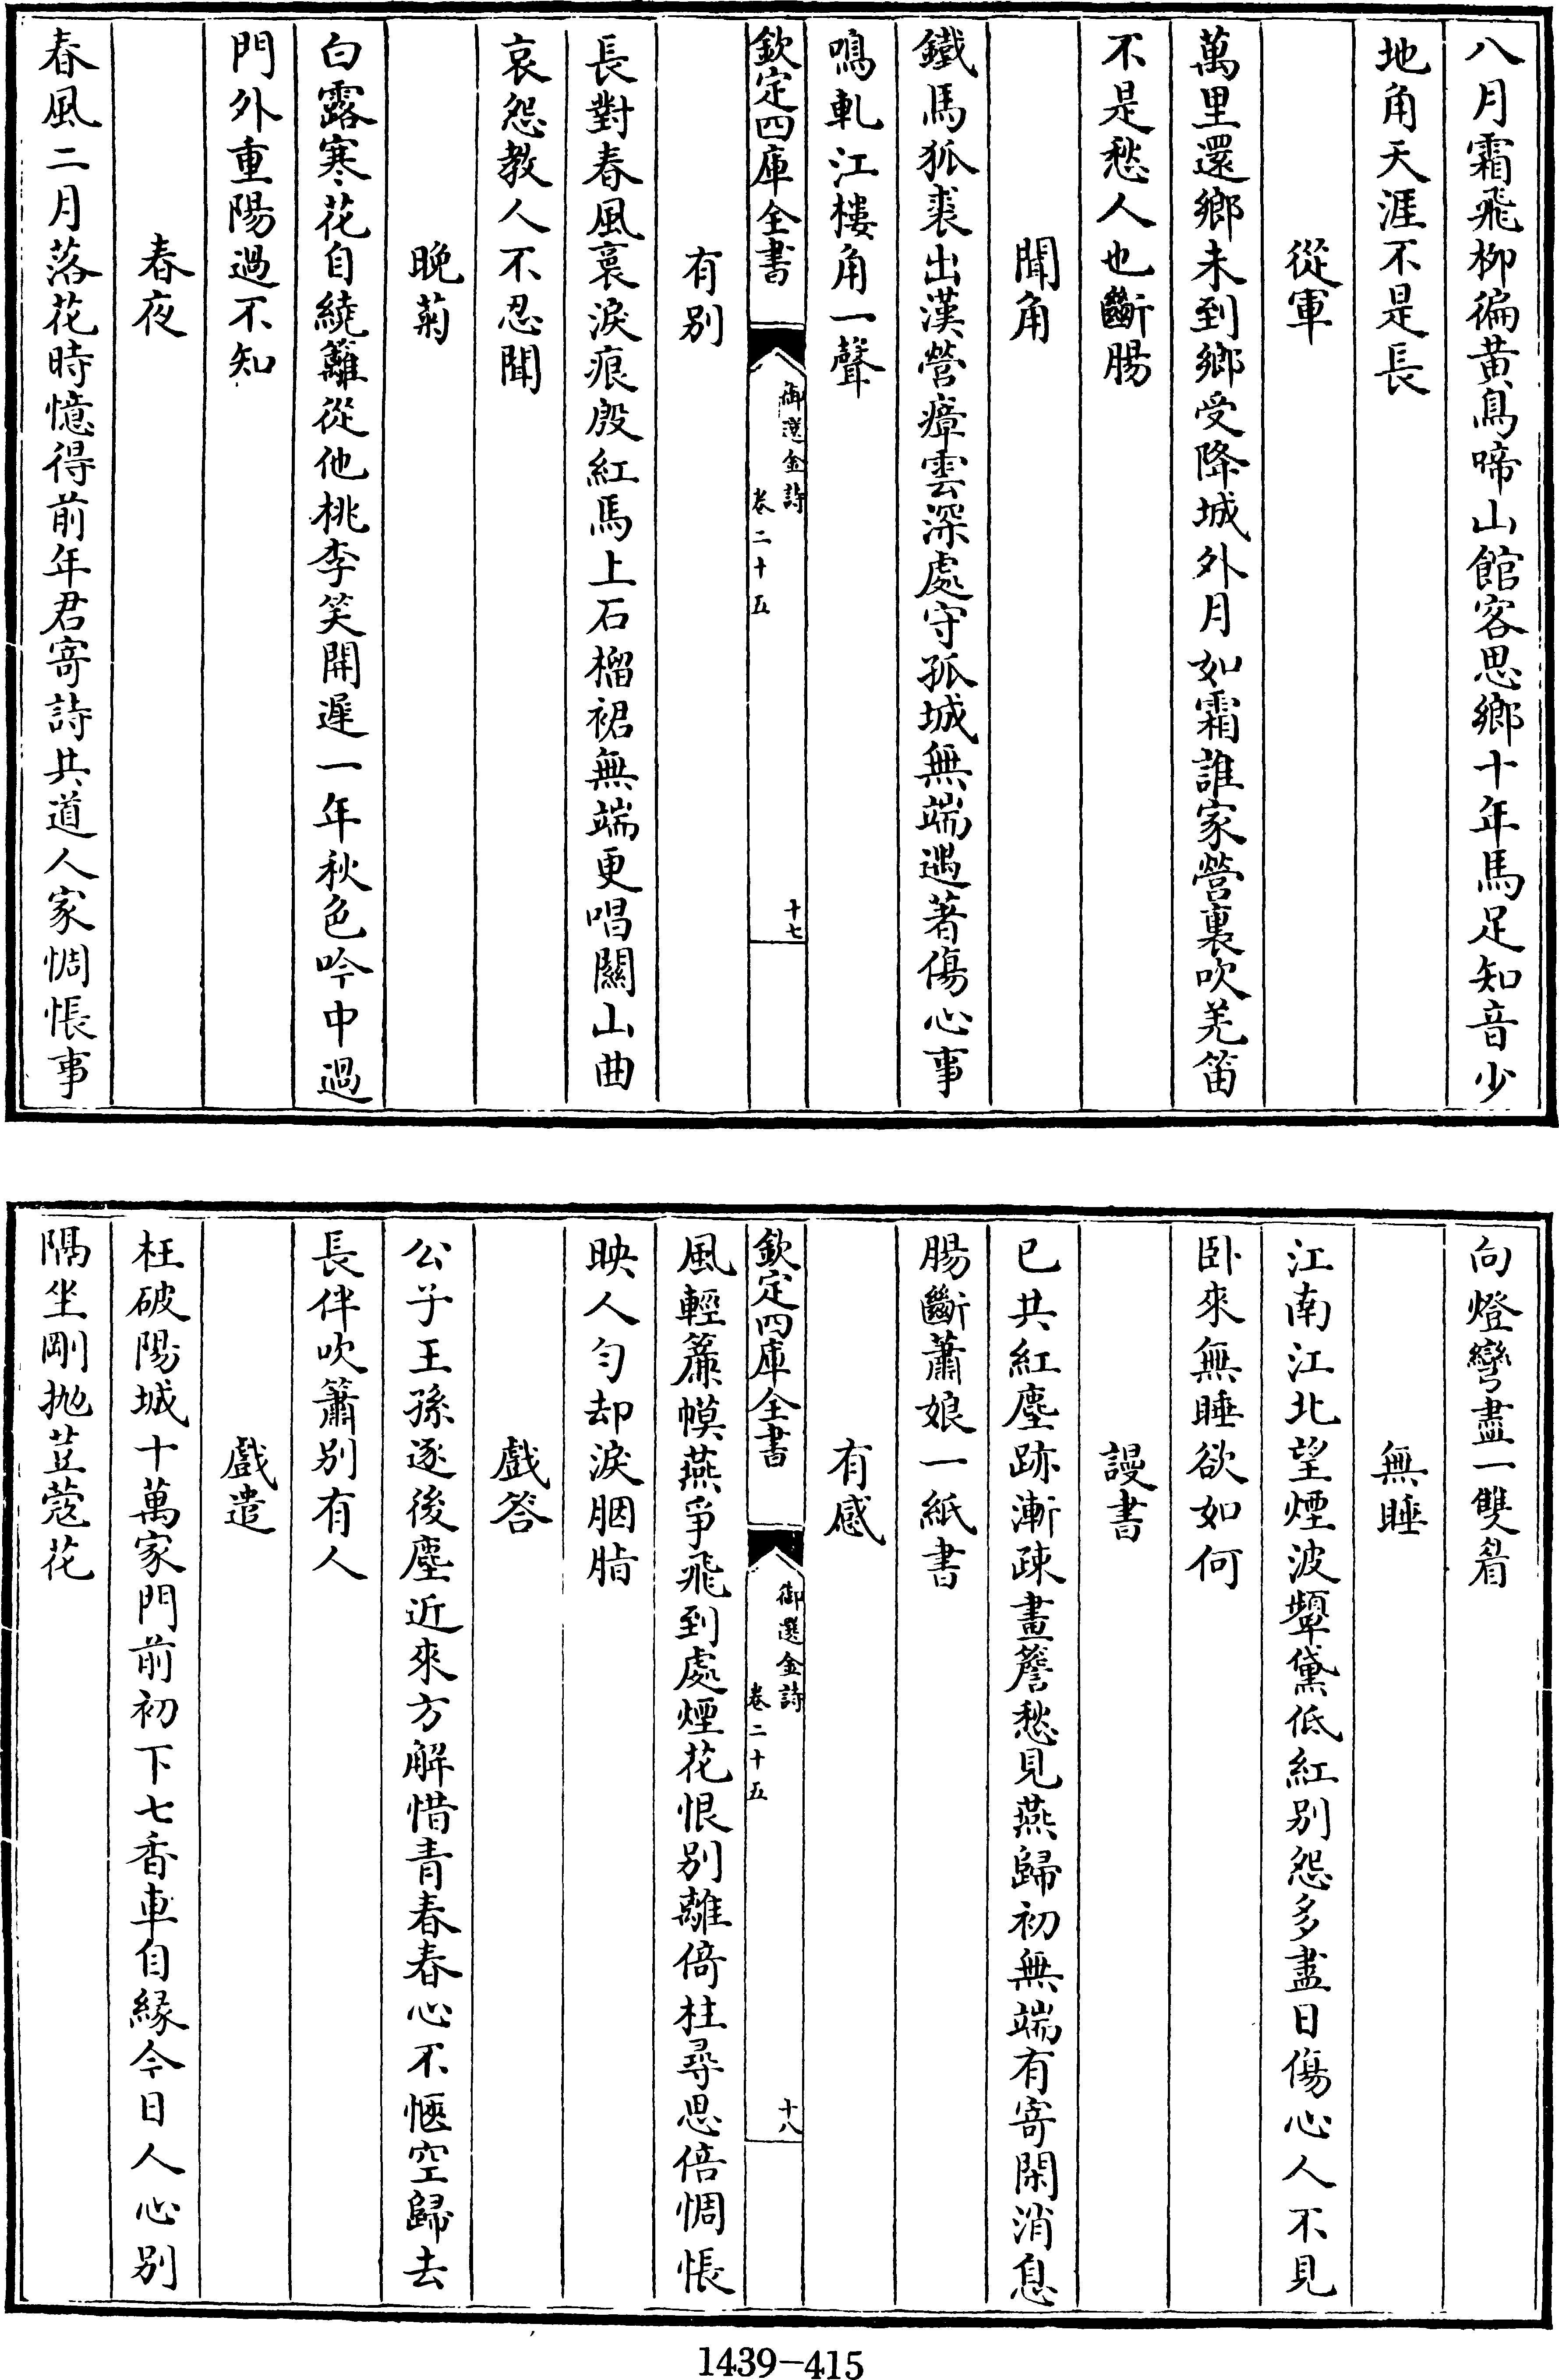 八月霜飛柳徧黄鳥啼山館客思鄉十年馬足知音少
地角天涯不是長
從軍
萬里還鄉未到鄉受降城外月如霜誰家營裏吹羌笛
不是愁人也斷腸
聞角
鐵馬狐裘出漢營瘴雲深處守孤城無端遇著傷心事
鳴軋江樓角一聲
欽定四庫全書
御選金詩
卷二十五
十七
有别
長對春風裛淚痕殷紅馬上石榴裙無端更唱關山曲
哀怨教人不忍聞
晚菊
白露寒花自繞籬從他桃李笑開遲一年秋色吟中過
門外重陽過不知
春夜
春風二月落花時憶得前年君寄詩共道人家惆悵事
向燈彎盡一雙眉
無睡
江南江北望煙波顰黛低紅别怨多盡日傷心人不見
卧來無睡欲如何
謾書
已共紅塵跡漸疎畫簷愁見燕歸初無端有寄閑消息
腸斷蕭娘一紙書
有感
欽定四庫全書
御選金詩
卷二十五
十八
風輕簾幙燕爭飛到處煙花恨别離倚柱尋思倍惆悵
映人匀却淚胭脂
戲答
公子王孫逐後塵近來方解惜青春春心不愜空歸去
長伴吹簫别有人
戲遣
枉破陽城十萬家門前初下七香車自緣今日人心别
隅坐剛抛荳蔻花
1439-415